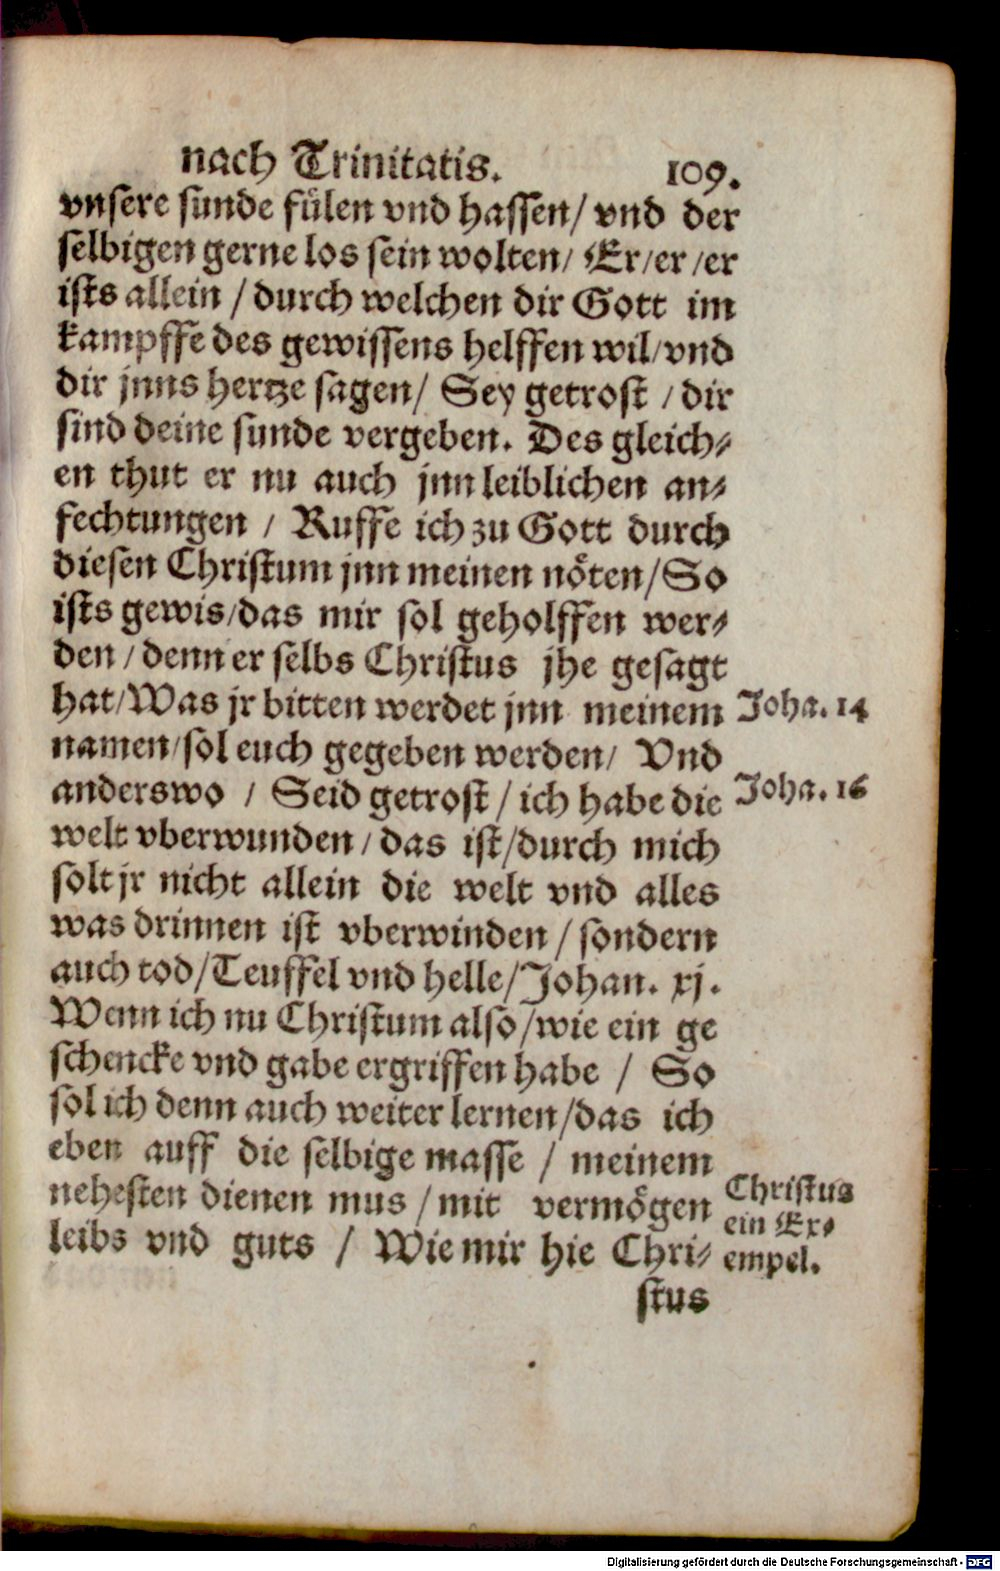 nach Trinitatis. 109.
vnsere sunde fülen vnd hassen/ vnd der
selbigen gerne los sein wolten/ Er/er/er
ists allein / durch welchen dir Gott im
kampffe des gewissens helffen wil/vnd
dir jnns hertze sagen/ Sey getrost / dir
sind deine sunde vergeben. Des gleich⸗
en thut er nu auch jnn leiblichen an⸗
fechtungen / Ruffe ich zu Gott durch
diesen Christum jnn meinen nöten/So
ists gewis/das mir sol geholffen wer⸗
den / denn er selbs Christus jhe gesagt
hat/Was jr bitten werdet jnn meinem
Joha. 14
namen/sol euch gegeben werden/ Vnd
anderswo / Seid getrost / ich habe die
Joha. 16
welt vberwunden / das ist/durch mich
solt jr nicht allein die welt vnd alles
was drinnen ist vberwinden / sondern
auch tod/Teuffel vnd helle/Johan. xj.
Wenn ich nu Christum also/wie ein ge
schencke vnd gabe ergriffen habe / So
sol ich denn auch weiter lernen/das ich
eben auff die selbige masse / meinem
nehesten dienen mus / mit vermögen
leibs vnd guts / Wie mir hie Chri⸗
Christus
ein Ex⸗
empel.
stus
Digitalisierung gefördert durch die Deutsche Forschungsgemeinschaft - DFG